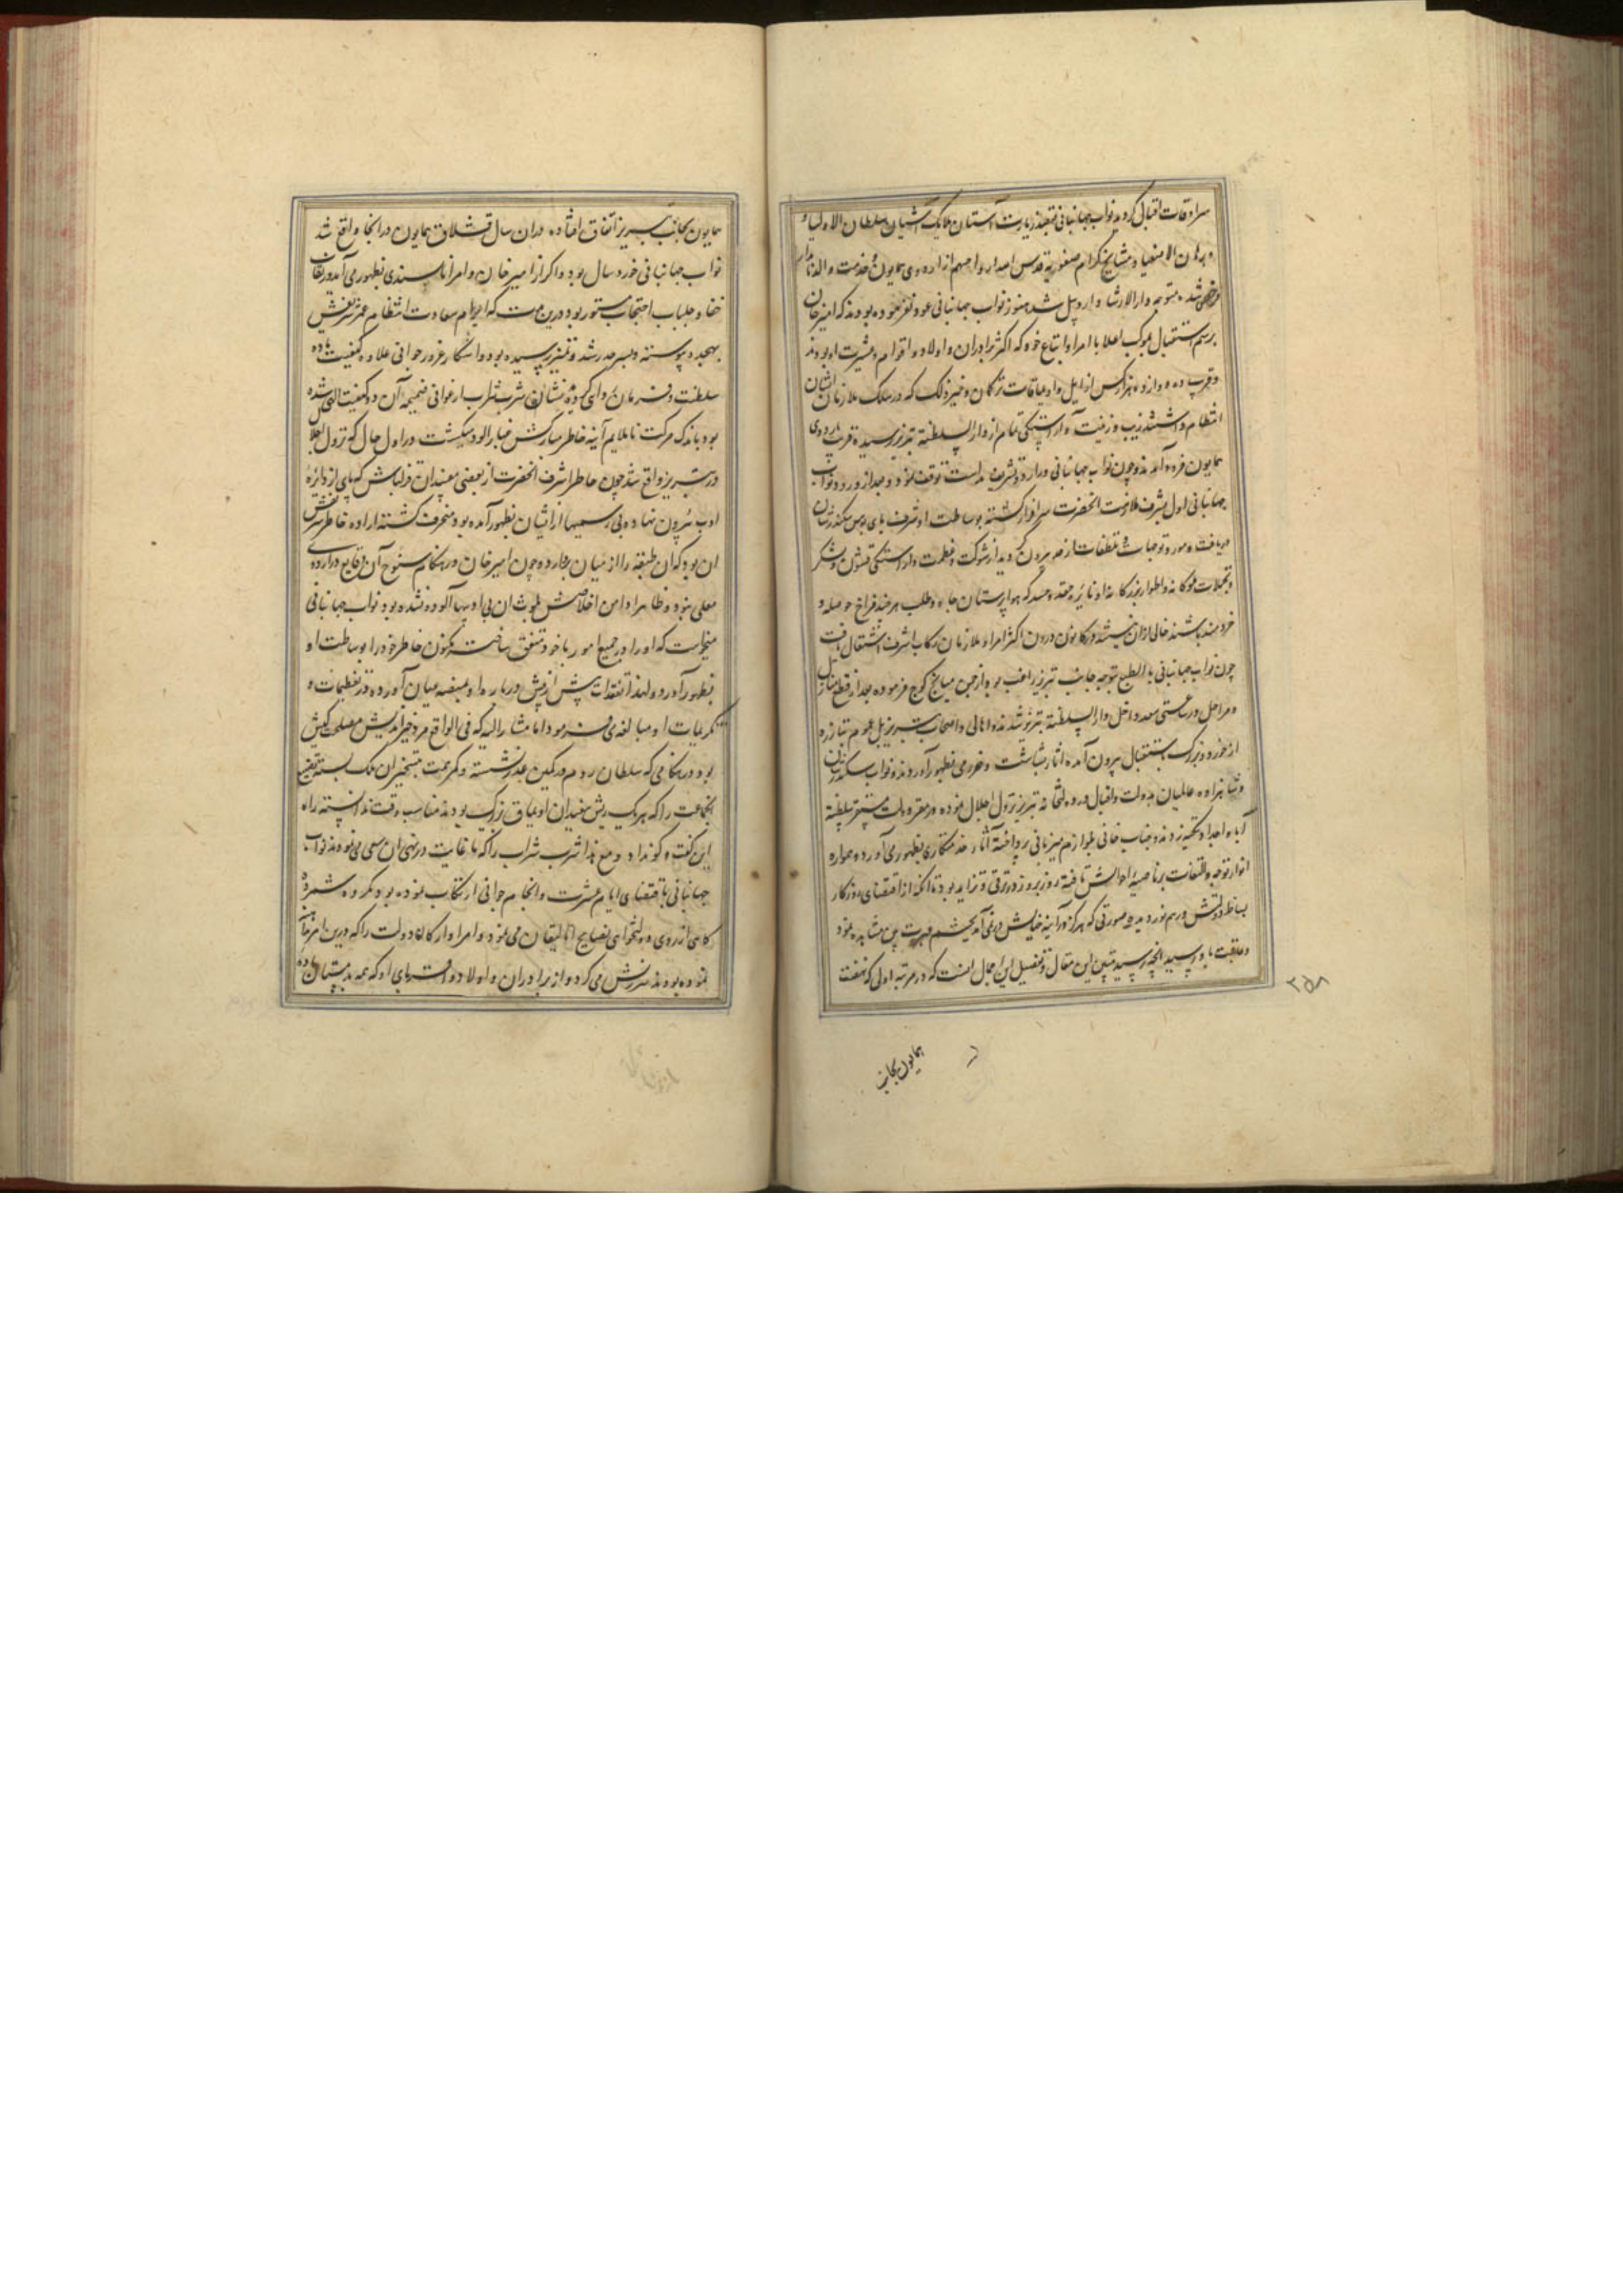 سرادقات اقبال گردید نواب جهانبانی بقصد زیارت آستان ملایک آشیان سلطان الاولیا و
و برهان الاصفیا و مشایخ کرام صفویه قدس اسرارواحهم از اردوی همایون و خدمت والد نامدار
مرخص شده متوجه دارالارشاد اردبیل شد هنوز نواب جهانبانی عود نفرموده بودند که امیرخان
برسم استقبال موکب اعلا با امرا و اتباع خود که اکثر برادران و اولاد و اقوام و عشیرت او بودند
و قریب ده دوازده هزار کس از ایل و اویماقات ترکمان و غیر ذلک که در سلک ملازمان ایشان
انتظام داشتند بزیب و زینت و آراستگی تمام از دارالسلطنه تبریز رسیده قریب باردوی
همایون فرود آمدند و چون نواب جهانبانی در اردو تشریف نداشت توقف نمود و بعد از ورود نواب
جهانبانی اول بشرف ملازمت آنحضرت سرافراز گشته بوساطت او شرف پای بوس سکندرشان
دریافت و مورد توجهات و تلطفات از حد بیرون گردید از شوکت و عظمت و آراستگی قشون و لشکر
و تجملات ملوکانه و اطوار بزرگانه او نایره حقد و حسد که هواپرستان جاه طلب هر چند فراخ حوصله و
خردمند باشند خالی از آن نیستند در کانون درون اکثر امراء ملازمان رکاب اشرف اشتعال یافت
چون نواب جهانبانی بالطبع بتوجه جانب تبریز راغب بود از چمن میانج کوچ فرموده بعد از قطع منازل
و مراحل در ساعتی سعد داخل دارالسلطنه تبریز شدند و اهالی و اصحاب تبریز بل عموم تبارزه
از خورد و بزرگ باستقبال بیرون آمده آثار بشاشت و خرمی بظهور آوردند و نواب سکندرشان
و شاهزاده عالمیان بدولت و اقبال در دولتخانه تبریز نزول اجلال نموده در مقر دولت مستقر سلطنت
آباء و اجداد تکیه زدند و جناب خانی بلوازم میزبانی پرداخته آثار خدمتکاری بظهور می آورد و همواره
انوار توجه و التفات بر ناصیه احوالش تافته روز بروز در ترقی و تزاید بود تا آنکه از اقتضای روزگار
بساط دولتش درهم نوردیده صورتی که هرگز در آینه خیالش در نمی آمد بچشم عبرت بین مشاهده نمود
و عاقبت باو رسید آنچه رسید تبیین این مقال و تفصیل این اجمال آنست که در مرتبه اولی که نهضت
همایون بجانب
۲۵۸
همایون بجانب تبریز اتفاق افتاده در آن سال قشلاق همایون در آنجا واقع شد
نواب جهانبانی خورد سال بود و اگر از امیرخان و امرا ناپسندی بظهور می آمد در نقاب
خفا و جلباب احتجاب مستور بود درین وقت که ایام سعادت انتظام عمر شریفش
بهجده پیوسته و بسرحد رشد و تمییز رسیده بود و استکبار غرور جوانی علاوه کیفیت باده
سلطنت و فرمان روایی گردیده نشان شرب شراب ارغوانی ضمیمه آن دو کیفیت شده
بود باندک حرکت ناملایم آینه خاطر مبارکش غبارآلود میگشت در اول حال که نزول اجلال
در تبریز واقع شد چون خاطر اشرف آنحضرت از بعضی مفسدان قزلباش که پای از دایره
ادب بیرون نهاده بی رسمیها از ایشان بظهور آمده بود منحرف گشته اراده خاطر شریفش
آن بود که آن طبقه را از میان بردارد و چون امیرخان در هنگام سنوح آن وقایع در اردوی
معلی نبود و ظاهرا دامن اخلاصش بلوث آن بی ادبیها آلوده نشده بود نواب جهانبانی
میخواست که او را در جمیع امور با خود متفق ساخته مکنون خاطر خود را بوساطت او
بظهور آورد و لهذا تفقدات بیش از پیش درباره او بمنصه میان آورده در تعظیمات و
تکریمات او مبالغه می فرمود اما مشارالیه که فی الواقع مرد خیراندیش مصلحت کیش
بود در هنگامی که سلطان روم در کمین عدو نشسته و کمر همت بتسخیر ایران ملک بسته تضییع
آنجماعت را که هر یک ریش سفیدان اویماق بزرگ بودند مناسب وقت ندانسته راه
این گفت و گو نداد و مع هذا شرب شراب را که تا غایت در نهی آن سعی می نمودند نواب
جهانبانی باقتضای ایام عشرت و هنگام جوانی ارتکاب نموده بود مکروه شمرده
گاهی از روی دولتخواهی نصایح اتالیقانه می نمود و امرا و ارکان دولت را که درین امر
نموده بودند سرزنش می کرد و از برادران و اولاد و اقربای او که همه بدمستان باده